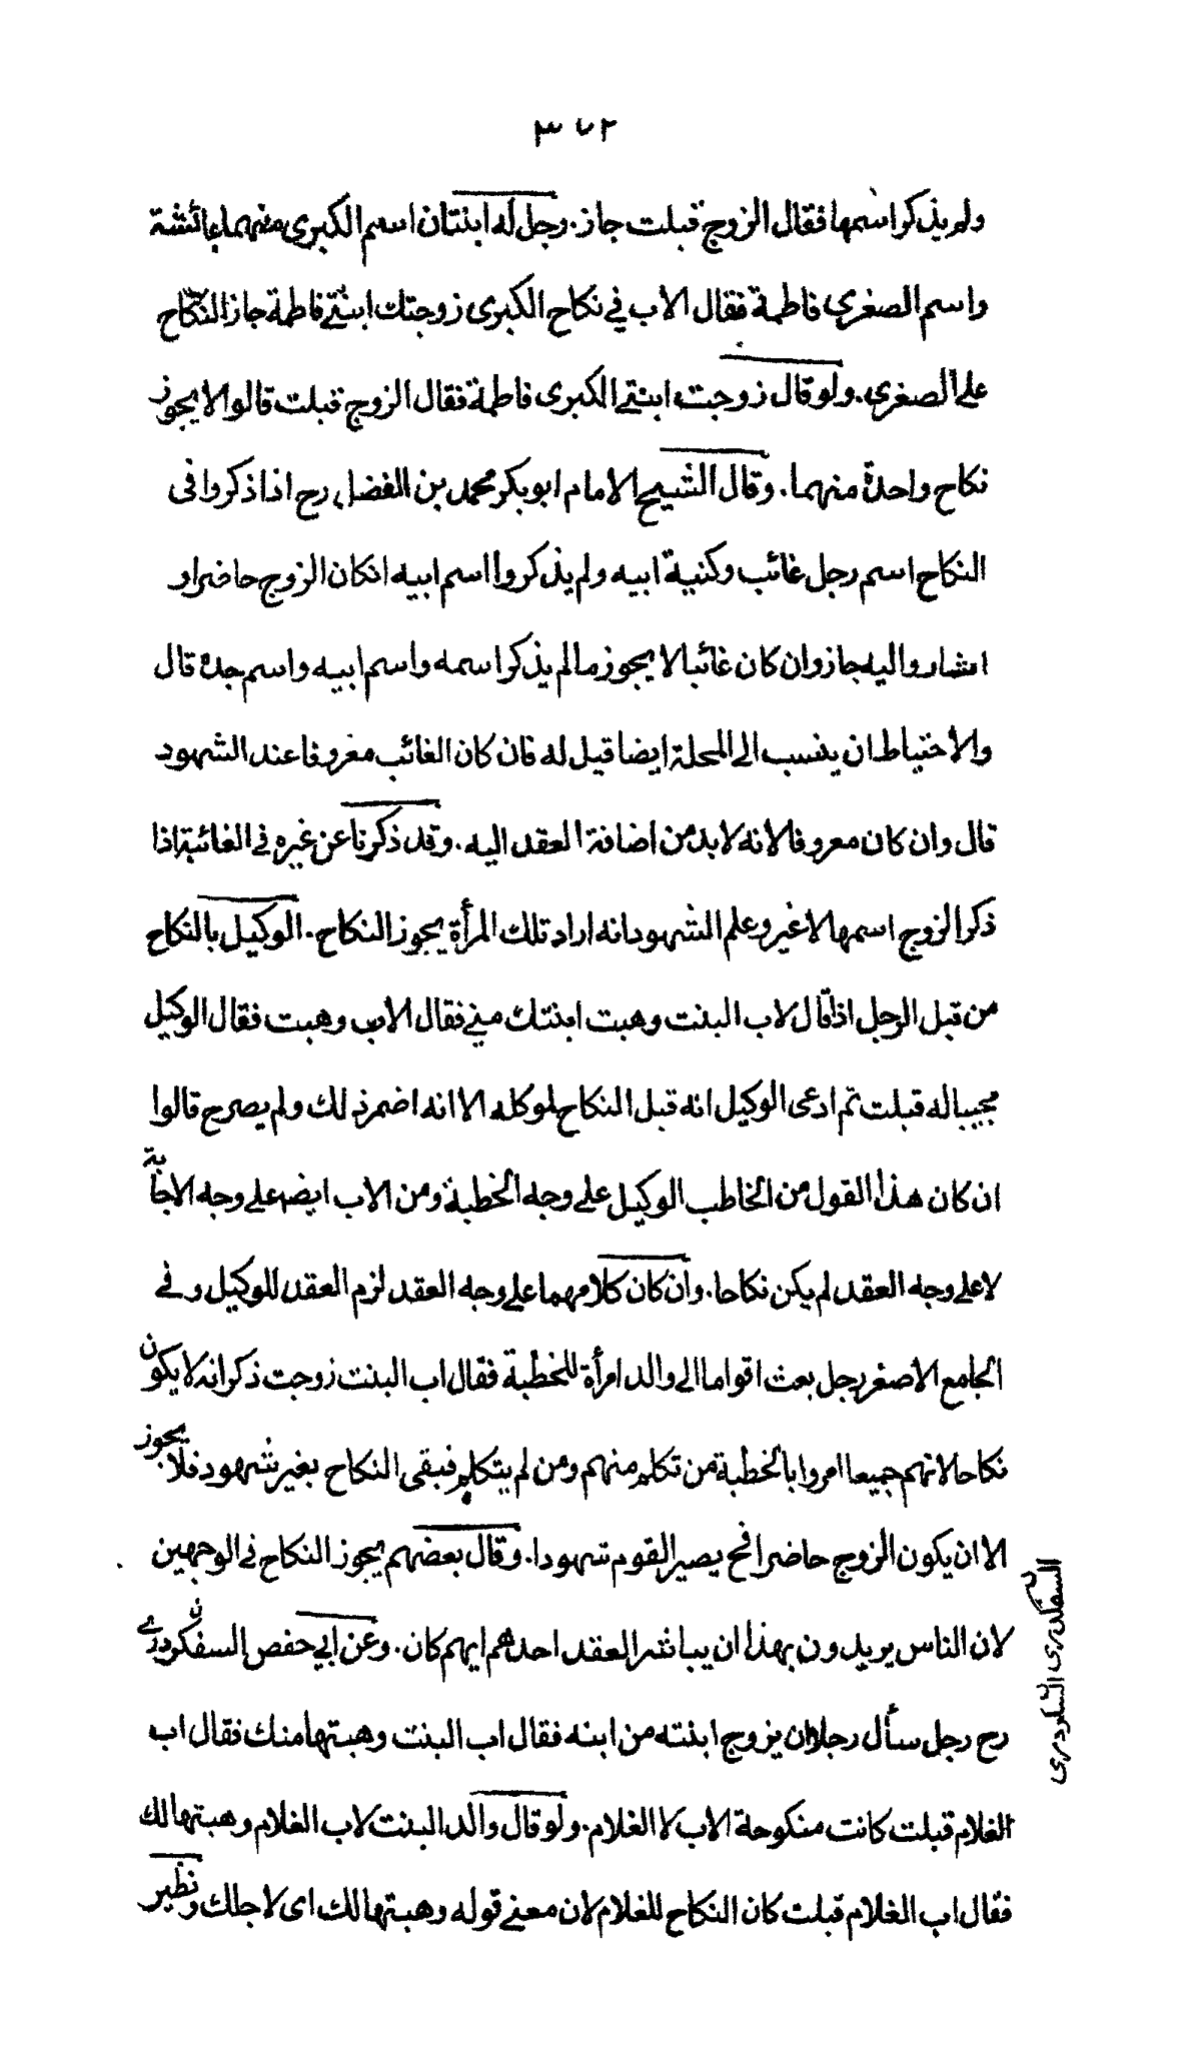 ٣٧٢
ولم يذكر اسمها فقال الزوج قبلت جاز. رجل له ابنتان اسم الكبرى منهما عائشة
واسم الصغرى فاطمة فقال الاب في نكاح الكبرى زوجتك ابنتي فاطمة جاز النكاح
على الصغرى. ولو قال زوجت ابنتي الكبرى فاطمة فقال الزوج قبلت قالوا لا يجوز
نكاح واحدة منهما. وقال الشيخ الامام ابو بكر محمد بن الفضل رح اذا ذكروا فى
النكاح اسم رجل غائب وكنية ابيه ولم يذكروا اسم ابيه ان كان الزوج حاضرا و
اشاروا اليه جاز وان كان غائبا لا يجوز ما لم يذكر اسمه واسم ابيه واسم جده قال
والاحتياط ان ينسب الى المحلة ايضا قيل له فان كان الغائب معروفا عند الشهود
قال وان كان معروفا لانه لا بد من اضافة العقد اليه. وقد ذكرنا عن غيره في الغائبة اذا
ذكر الزوج اسمها لا غير وعلم الشهود انه اراد تلك المرأة يجوز النكاح. الوكيل بالنكاح
من قبل الرجل اذا قال لاب البنت وهبت ابنتك مني فقال الاب وهبت فقال الوكيل
مجيبا له قبلت ثم ادعى الوكيل انه قبل النكاح لموكله الا انه اضمر ذلك ولم يصرح قالوا
ان كان هذا القول من الخاطب الوكيل على وجه الخطبة ومن الاب ايضا على وجه الاجابة
لا على وجه العقد لم يكن نكاحا. وان كان كلامهما على وجه العقد لزم العقد للوكيل وفي
الجامع الاصغر رجل بعث اقواما الى والد امرأة للخطبة فقال اب البنت زوجت ذكر انه لا يكون
نكاحا لانهم جميعا امروا بالخطبة من تكلم منهم ومن لم يتكلم فبقى النكاح بغير شهود فلا يجوز
الا ان يكون الزوج حاضرا فح يصير القوم شهودا. وقال بعضهم يجوز النكاح في الوجهين
لان الناس يريدون بهذا ان يباشر العقد احدهم ايهم كان. وعن ابي حفص السفكردري
رح رجل سأل رجلا ان يزوج ابنته من ابنه فقال اب البنت وهبتها منك فقال اب
الغلام قبلت كانت منكوحة الاب لا الغلام. ولو قال والد البنت لاب الغلام وهبتها لك
فقال اب الغلام قبلت كان النكاح للغلام لان معنى قوله وهبتها لك اى لاجلك ونظير